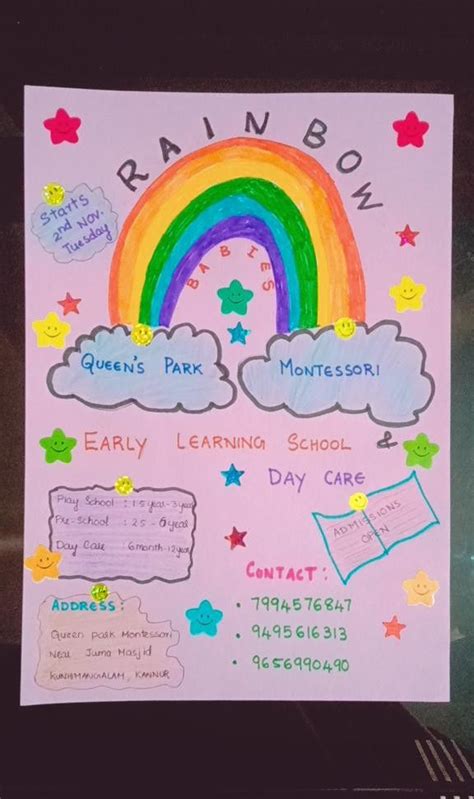 RAINBOW
BABIES
Starts
2nd NOV.
Tuesday
QUEEN'S PARK
MONTESSORI
EARLY LEARNING SCHOOL &
DAY CARE
Play School : 1.5 year - 3 year
Pre-School : 2.5 - 6 year
Day Care : 6 month - 12 year
ADMISSIONS
OPEN
ADDRESS :
Queen park Montessori
Near Juma Masjid
KUNHIMANGALAM, KANNUR
CONTACT :
• 7994576847
• 9495616313
• 9656990490